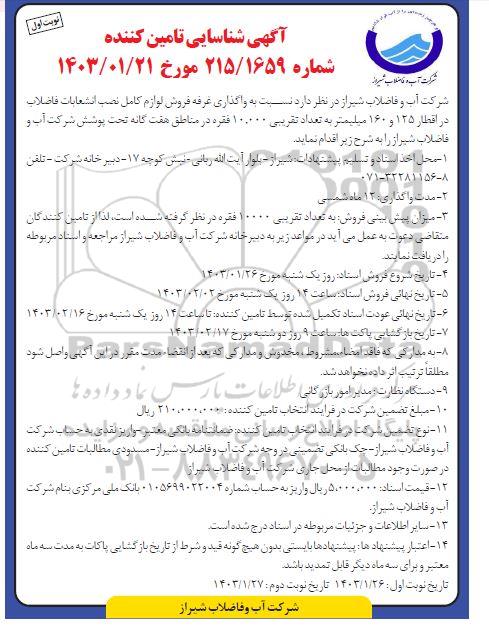 نوبت اول
آگهی شناسایی تامین کننده
شماره ۲۱۵/۱۶۵۹ مورخ ۱۴۰۳/۰۱/۲۱
شرکت آب و فاضلاب شیراز
شرکت آب و فاضلاب شیراز در نظر دارد نسبت به واگذاری غرفه فروش لوازم کامل نصب انشعابات فاضلاب
در اقطار ۱۲۵ و ۱۶۰ میلیمتر به تعداد تقریبی ۱۰،۰۰۰ فقره در مناطق هفت گانه تحت پوشش شرکت آب و
فاضلاب شیراز را به شرح زیر اقدام نماید.
۱-محل اخذ اسناد و تسلیم پیشنهادات: شیراز-بلوار آیت الله ربانی-نبش کوچه ۱۷-دبیرخانه شرکت-تلفن
۸-۳۲۲۸۱۱۵۶-۰۷۱
۲-مدت واگذاری: ۱۲ ماه شمسی
۳-میزان پیش بینی فروش: به تعداد تقریبی ۱۰۰۰۰ فقره در نظر گرفته شده است، لذا از تامین کنندگان
متقاضی دعوت به عمل می آید در مواعد زیر به دبیرخانه شرکت آب و فاضلاب شیراز مراجعه و اسناد مربوطه
را دریافت نمایند.
۴-تاریخ شروع فروش اسناد: روز یک شنبه مورخ ۱۴۰۳/۰۱/۲۶
۵-تاریخ نهائی فروش اسناد: ساعت ۱۴ روز یک شنبه مورخ ۱۴۰۳/۰۲/۰۲
۶-تاریخ نهائی عودت اسناد تکمیل شده توسط تامین کننده: تا ساعت ۱۴ روز یک شنبه مورخ ۱۴۰۳/۰۲/۱۶
۷-تاریخ بازگشایی پاکت ها: ساعت ۹ روز دو شنبه مورخ ۱۴۰۳/۰۲/۱۷
۸-به مدارکی که فاقد امضاء، مشروط، مخدوش و مدارکی که بعد از انقضاء مدت مقرر در این آگهی واصل شود
مطلقاً ترتیب اثر داده نخواهد شد.
۹-دستگاه نظارت: مدیر امور بازرگانی
۱۰-مبلغ تضمین شرکت در فرایند انتخاب تامین کننده: ۲۱۰،۰۰۰،۰۰۰ ریال
۱۱-نوع تضمین شرکت در فرایند انتخاب تامین کننده: ضمانتنامه بانکی معتبر-واریز نقدی به حساب شرکت
آب و فاضلاب شیراز-چک بانکی تضمینی در وجه شرکت آب و فاضلاب شیراز-مسدودی مطالبات تامین کننده
در صورت وجود مطالبات از محل جاری شرکت آب و فاضلاب شیراز
۱۲-قیمت اسناد: ۵،۰۰۰،۰۰۰ ریال واریز به حساب شماره ۰۱۰۵۶۹۹۰۲۲۰۰۴ بانک ملی مرکزی بنام شرکت
آب و فاضلاب شیراز.
۱۳-سایر اطلاعات و جزئیات مربوطه در اسناد درج شده است.
۱۴-اعتبار پیشنهادها: پیشنهادها بایستی بدون هیچ گونه قید و شرط از تاریخ بازگشایی پاکات به مدت سه ماه
معتبر و برای سه ماه دیگر قابل تمدید باشد.
تاریخ نوبت اول: ۱۴۰۳/۱/۲۶ تاریخ نوبت دوم: ۱۴۰۳/۱/۲۷
شرکت آب وفاضلاب شیراز